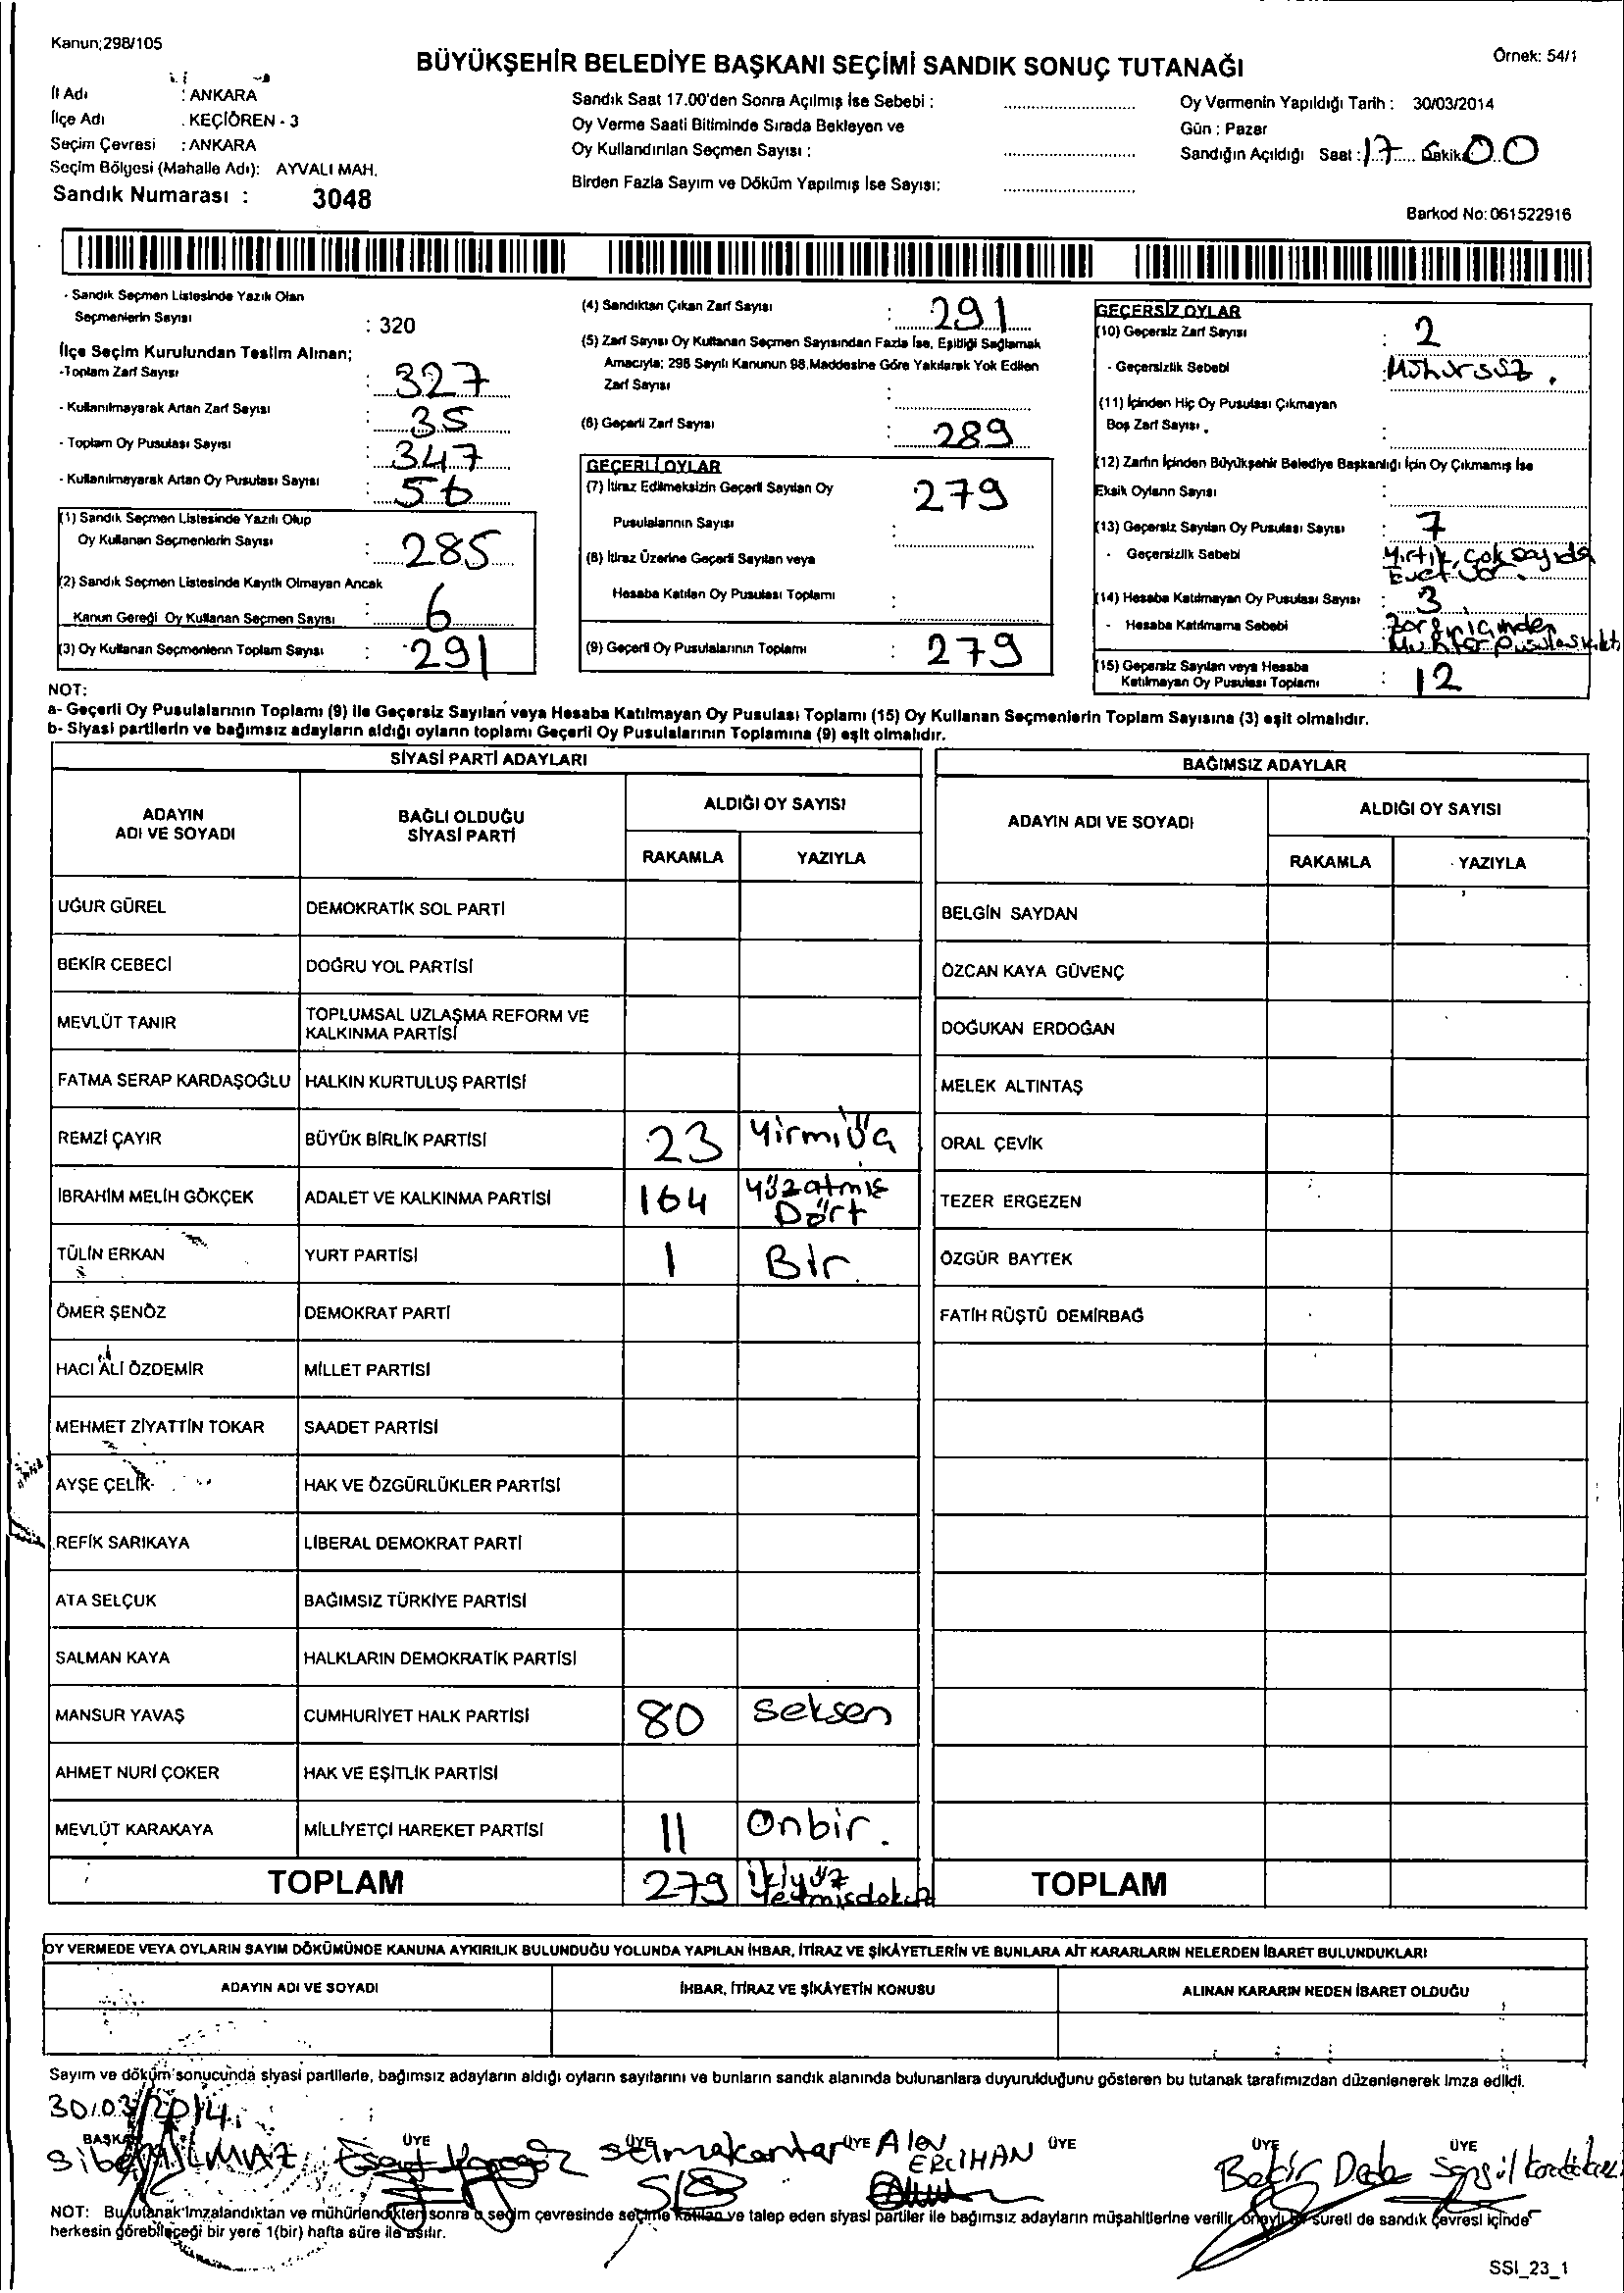 Kanun;298/105
BÜYÜKŞEHİR BELEDİYE BAŞKANI SEÇİMİ SANDIK SONUÇ TUTANAĞI
Örnek: 54/1
İl Adı : ANKARA
İlçe Adı . KEÇİÖREN - 3
Seçim Çevresi : ANKARA
Seçim Bölgesi (Mahalle Adı): AYVALI MAH.
Sandık Numarası : 3048
Sandık Saat 17.00'den Sonra Açılmış İse Sebebi :
Oy Verme Saati Bitiminde Sırada Bekleyen ve
Oy Kullandırılan Seçmen Sayısı :
Birden Fazla Sayım ve Döküm Yapılmış İse Sayısı:
Oy Vermenin Yapıldığı Tarih : 30/03/2014
Gün : Pazar
Sandığın Açıldığı Saat : 17 Dakika 00
Barkod No: 061522916
- Sandık Seçmen Listesinde Yazılı Olan
Seçmenlerin Sayısı : 320
İlçe Seçim Kurulundan Teslim Alınan;
-Toplam Zarf Sayısı : 327
- Kullanılmayarak Artan Zarf Sayısı : 35
- Toplam Oy Pusulası Sayısı : 347
- Kullanılmayarak Artan Oy Pusulası Sayısı : 56
(1) Sandık Seçmen Listesinde Yazılı Olup
Oy Kullanan Seçmenlerin Sayısı : 285
(2) Sandık Seçmen Listesinde Kayıtlı Olmayan Ancak
Kanun Gereği Oy Kullanan Seçmen Sayısı : 6
(3) Oy Kullanan Seçmenlerin Toplam Sayısı : 291
(4) Sandıktan Çıkan Zarf Sayısı : 291
(5) Zarf Sayısı Oy Kullanan Seçmen Sayısından Fazla İse, Eşitliği Sağlamak
Amacıyla; 298 Sayılı Kanunun 98.Maddesine Göre Yakılarak Yok Edilen
Zarf Sayısı :
(6) Geçerli Zarf Sayısı : 289
GEÇERLİ OYLAR
(7) İtiraz Edilmeksizin Geçerli Sayılan Oy 279
Pusulalarının Sayısı :
(8) İtiraz Üzerine Geçerli Sayılan veya
Hesaba Katılan Oy Pusulası Toplamı :
(9) Geçerli Oy Pusulalarının Toplamı : 279
GEÇERSİZ OYLAR
(10) Geçersiz Zarf Sayısı : 2
- Geçersizlik Sebebi : Mühürsüz.
(11) İçinden Hiç Oy Pusulası Çıkmayan
Boş Zarf Sayısı . :
(12) Zarfın İçinden Büyükşehir Belediye Başkanlığı İçin Oy Çıkmamış İse
Eksik Oyların Sayısı :
(13) Geçersiz Sayılan Oy Pusulası Sayısı : 7
- Geçersizlik Sebebi : Yırtık, çok sayıda
Evet var.
(14) Hesaba Katılmayan Oy Pusulası Sayısı : 3
- Hesaba Katılmama Sebebi : zarfın içinden
Muhtar pusulası çıktı
(15) Geçersiz Sayılan veya Hesaba
Katılmayan Oy Pusulası Toplamı : 12
NOT:
a- Geçerli Oy Pusulalarının Toplamı (9) ile Geçersiz Sayılan veya Hesaba Katılmayan Oy Pusulası Toplamı (15) Oy Kullanan Seçmenlerin Toplam Sayısına (3) eşit olmalıdır.
b- Siyasi partilerin ve bağımsız adayların aldığı oyların toplamı Geçerli Oy Pusulalarının Toplamına (9) eşit olmalıdır.
SİYASİ PARTİ ADAYLARI
BAĞIMSIZ ADAYLAR
ADAYIN ADI VE SOYADI
BAĞLI OLDUĞU SİYASİ PARTİ
ALDIĞI OY SAYISI
RAKAMLA YAZIYLA
ADAYIN ADI VE SOYADI
ALDIĞI OY SAYISI
RAKAMLA YAZIYLA
UĞUR GÜREL DEMOKRATİK SOL PARTİ BELGİN SAYDAN
BEKİR CEBECİ DOĞRU YOL PARTİSİ ÖZCAN KAYA GÜVENÇ
MEVLÜT TANIR TOPLUMSAL UZLAŞMA REFORM VE KALKINMA PARTİSİ DOĞUKAN ERDOĞAN
FATMA SERAP KARDAŞOĞLU HALKIN KURTULUŞ PARTİSİ MELEK ALTINTAŞ
REMZİ ÇAYIR BÜYÜK BİRLİK PARTİSİ 23 Yirmiüç ORAL ÇEVİK
İBRAHİM MELİH GÖKÇEK ADALET VE KALKINMA PARTİSİ 164 Yüzatmış Dört TEZER ERGEZEN
TÜLİN ERKAN YURT PARTİSİ 1 Bir ÖZGÜR BAYTEK
ÖMER ŞENÖZ DEMOKRAT PARTİ FATİH RÜŞTÜ DEMİRBAĞ
HACI ALİ ÖZDEMİR MİLLET PARTİSİ
MEHMET ZİYATTİN TOKAR SAADET PARTİSİ
AYŞE ÇELİK HAK VE ÖZGÜRLÜKLER PARTİSİ
REFİK SARIKAYA LİBERAL DEMOKRAT PARTİ
ATA SELÇUK BAĞIMSIZ TÜRKİYE PARTİSİ
SALMAN KAYA HALKLARIN DEMOKRATİK PARTİSİ
MANSUR YAVAŞ CUMHURİYET HALK PARTİSİ 80 Seksen
AHMET NURİ ÇOKER HAK VE EŞİTLİK PARTİSİ
MEVLÜT KARAKAYA MİLLİYETÇİ HAREKET PARTİSİ 11 Onbir.
TOPLAM 279 ikiyüz Yetmişdokuz TOPLAM
OY VERMEDE VEYA OYLARIN SAYIM DÖKÜMÜNDE KANUNA AYKIRILIK BULUNDUĞU YOLUNDA YAPILAN İHBAR, İTİRAZ VE ŞİKÂYETLERİN VE BUNLARA AİT KARARLARIN NELERDEN İBARET BULUNDUKLARI
ADAYIN ADI VE SOYADI İHBAR, İTİRAZ VE ŞİKÂYETİN KONUSU ALINAN KARARIN NEDEN İBARET OLDUĞU
Sayım ve döküm sonucunda siyasi partilerle, bağımsız adayların aldığı oyların sayılarını ve bunların sandık alanında bulunanlara duyurulduğunu gösteren bu tutanak tarafımızdan düzenlenerek imza edildi.
30/03/2014
BAŞKAN ÜYE ÜYE ÜYE ÜYE ÜYE ÜYE
Sibel YILMAZ Alev ERCİHAN Bekir Dede
NOT: Bu tutanak imzalandıktan ve mühürlendikten sonra o seçim çevresinde seçime katılan ve talep eden siyasi partiler ile bağımsız adayların müşahitlerine verilir, onaylı bir sureti de sandık çevresi içinde
herkesin görebileceği bir yere 1(bir) hafta süre ile asılır.
SSI_23_1